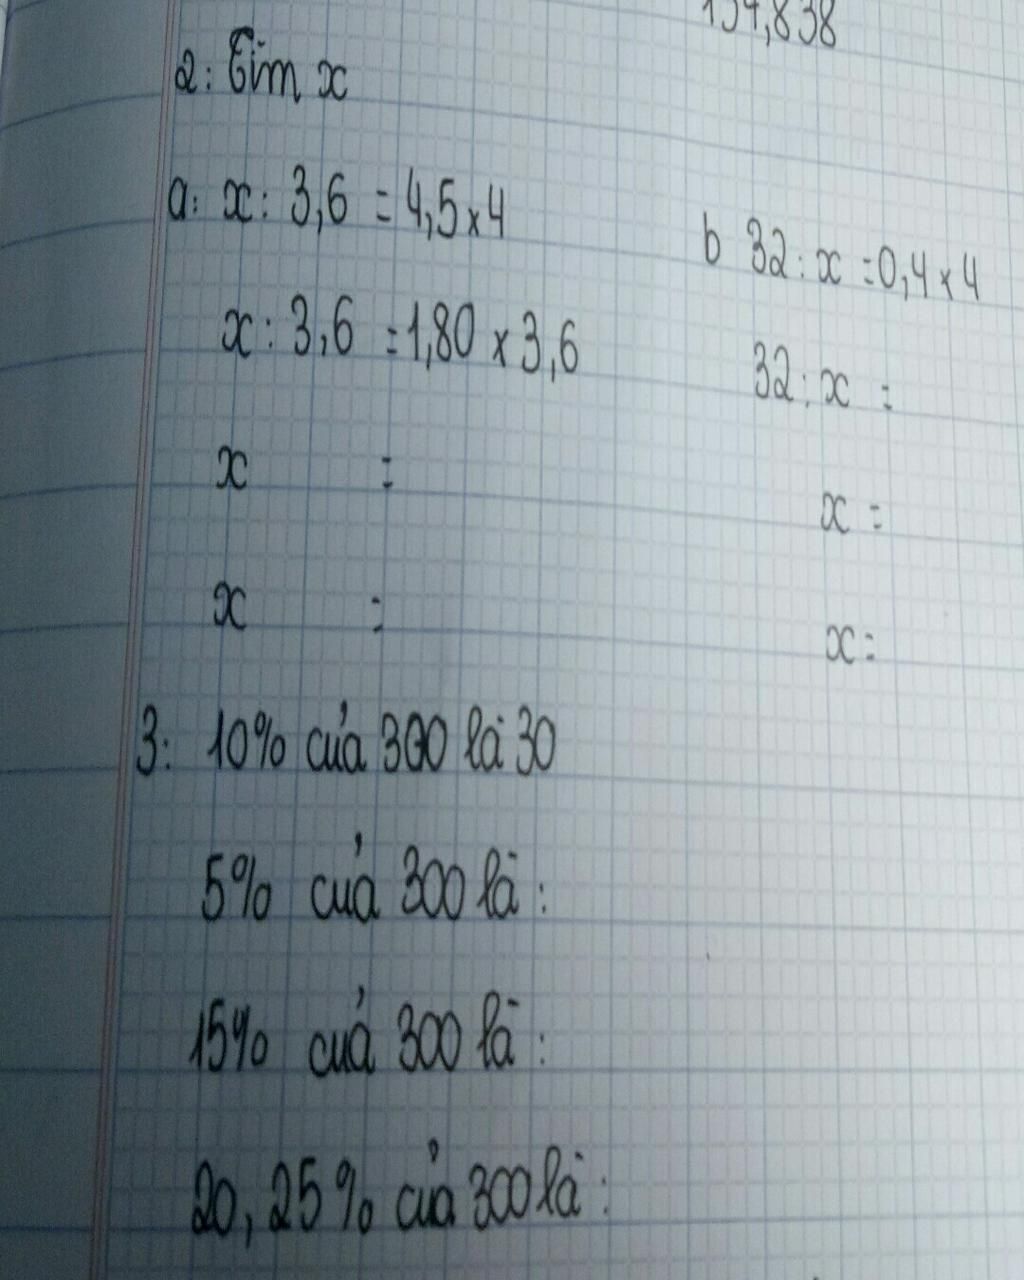 154,838
2: Tìm x
a: x : 3,6 = 4,5 x 4
x : 3,6 = 1,80 x 3,6
x =
x =
b 32 : x = 0,4 x 4
32 : x =
x =
x =
3: 10% của 300 là 30
5% của 300 là :
15% của 300 là :
20,25% của 300 là :